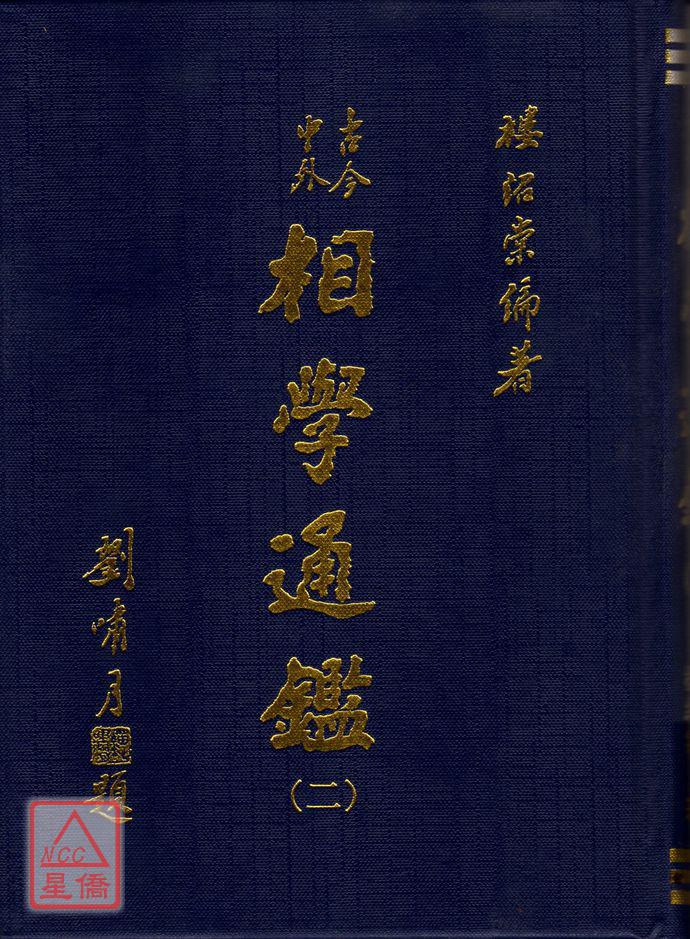 樓紹棠編著
古今
中外
相學通鑑
(二)
劉嘯月題
NCC
星僑